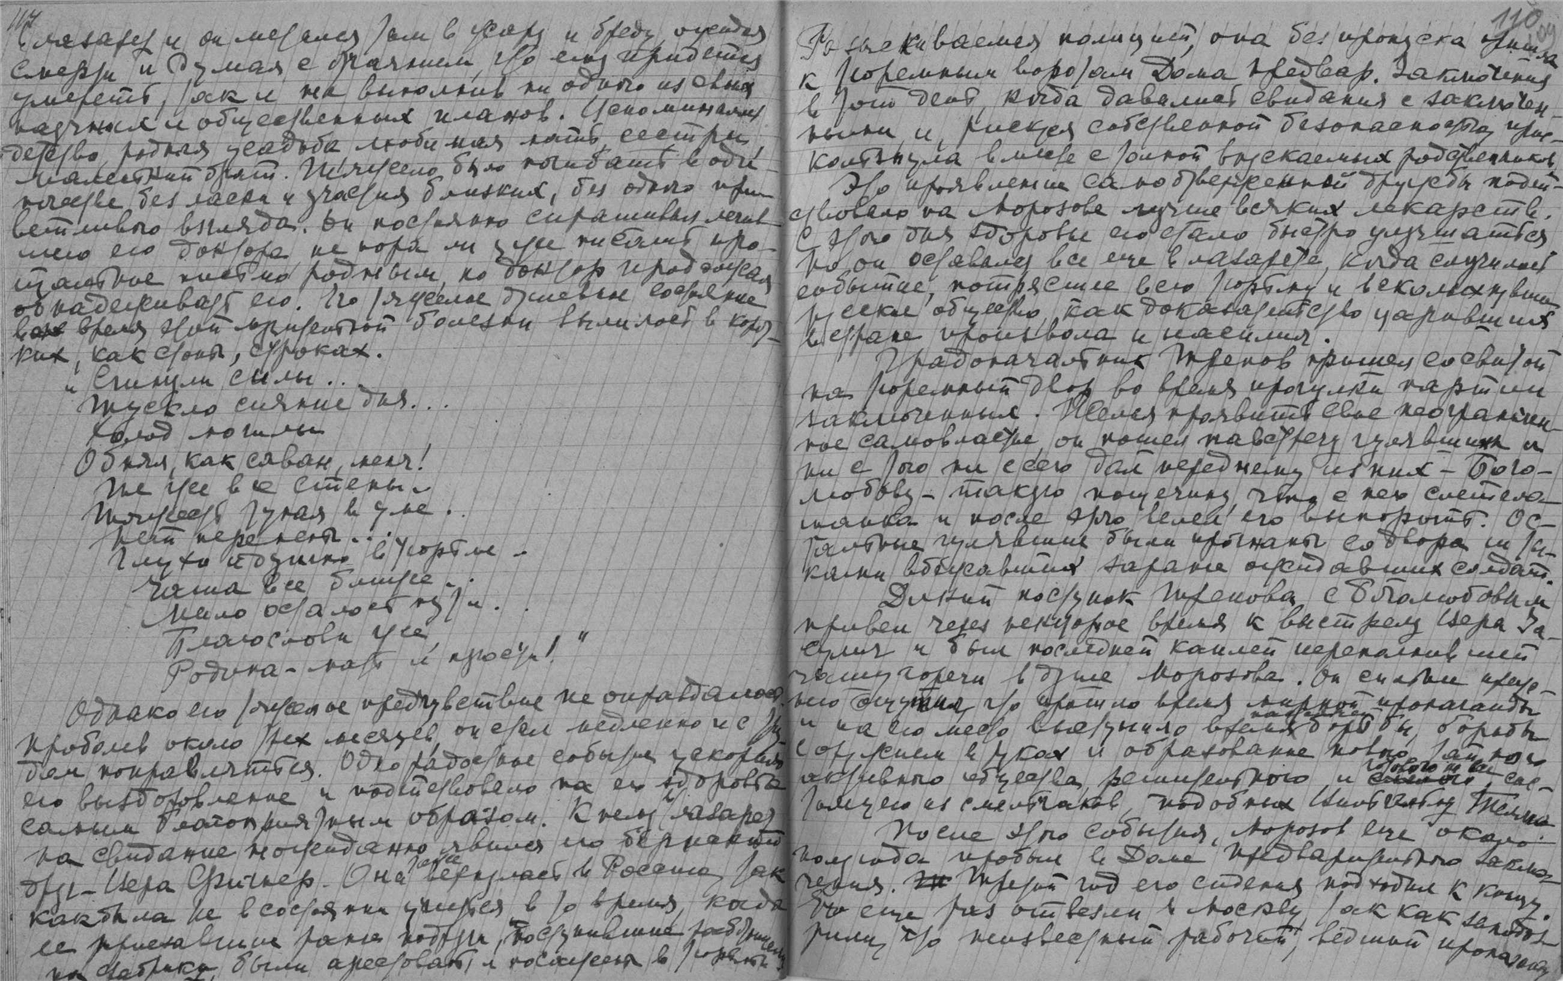 117
в лазарет и он метался там в жару и бреду, ожидая
смерти и думая с отчаянием, что ему придется
умереть, так и не выполнив ни одного из своих
научных и общественных планов. Вспоминались
детство, родная усадьба, любимая мать, сестры,
маленький брат. Тяжело было погибать в оди-
ночестве, без ласки и участия близких, без одного при-
ветливого взгляда. Он постоянно спрашивал лечив-
шего его доктора не пора ли уже писать про-
щальное письмо родным, но доктор продолжал
обнадеживать его. Его тяжелое душевное состояние
во время этой мучительной болезни вылилось в корот-
ких, как стоны, строках.
"Сгинули силы..
Тускло сияние дня...
Холод могилы
Обнял, как саван, меня!
Те же все стены..
Тяжесть тупая в уме..
Нет перемены...
Глухо и душно в тюрьме..
Чаша все ближе..
Мало осталось пути..
Благослови же,
Родина-мать и прости!"
Однако его тяжелое предчувствие не оправдалось.
Проболев около трех месяцев, он стал медленно и с тру-
дом поправляться. Одно радостное событие ускорило
его выздоровление и подействовало на его здоровье
самым благоприятным образом. К нему в лазарет
на свидание неожиданно явился его бернский
друг - Вера Фигнер. Она вернулась в Россию, так
как была не в состоянии учиться в то время, когда
ее приехавшие ранее подруги, поступившие работницами
на фабрики, были арестованы и посажены в тюрьмы
110
109
Разыскиваемая полицией, она без пропуска пришла
к тюремным воротам Дома предвар. заключения
в тот день, когда давались свидания с заключен-
ными и, рискуя собственной безопасностью, прос-
кользнула вместе с толпой впускаемых родственников.
Это проявление самоотверженной дружбы подей-
ствовало на Морозова лучше всяких лекарств.
С этого дня здоровье его стало быстро улучшаться
но он оставался все еще в лазарете, когда случилось
событие, потрясшее всю тюрьму и всколыхнувшее
русское общество, как доказательство царивших
в стране произвола и насилия.
Градоначальник Трепов пришел со свитой
на тюремный двор во время прогулки партии
заключенных. Желая проявить свое неограничен-
ное самовластие, он пошел навстречу гулявшим и
ни с того ни с сего дал переднему из них - Бого-
любову - такую пощечину, что с него слетела
шапка и после этого велел его выпороть. Ос-
тальные гулявшие были прогнаны со двора шты-
ками вбежавших заранее ожидавших солдат.
Дикий поступок Трепова с Боголюбовым
привел через некоторое время к выстрелу Веры За-
сулич и был последней каплей переполнившей
чашу горечи в душе Морозова. Он сильнее преж-
него ощутил, что прошло время мирной пропаганды
и на его место выступило время борьбы, борьбы
с оружием в руках и образование нового тайного
активного общества, решительного и состо-
ящего из смельчаков, подобных Вильгельму Теллю.
После этого события, Морозов еще около
полгода пробыл в Доме предварительного заклю-
чения. Третий год его сидения подходил к концу.
Его еще раз отвезли в Москву, так как заподоз-
рили, что неизвестный рабочий, ведший пропаганду